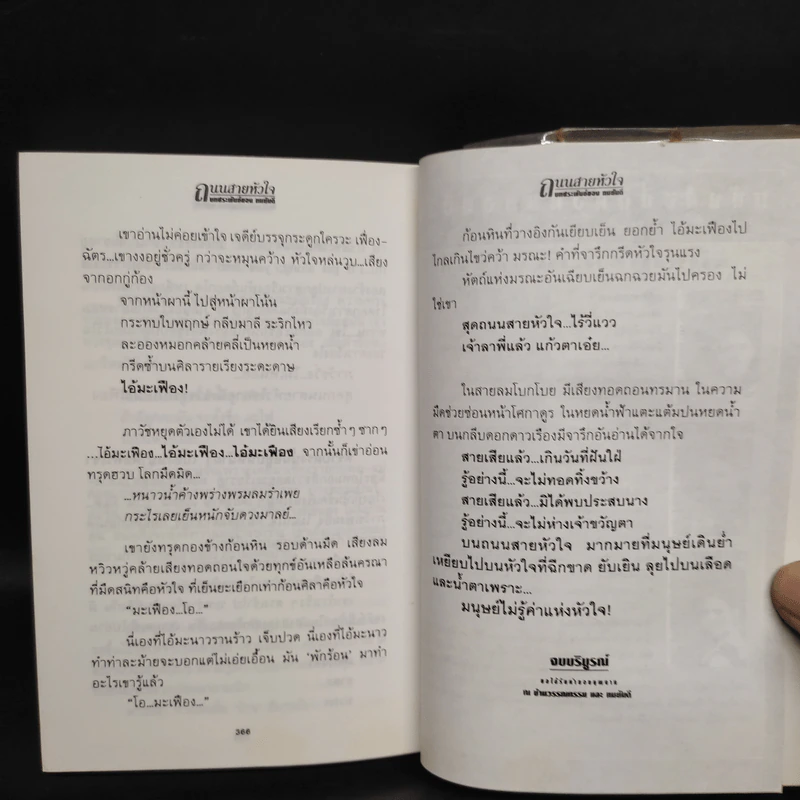 ถนนสายหัวใจ
บทประพันธ์ของ ทมยันตี
เขาอ่านไม่ค่อยเข้าใจ เจดีย์บรรจุกระดูกใครวะ เฟื่อง-
ฉัตร...เขางงอยู่ชั่วครู่ กว่าจะหมุนคว้าง หัวใจหล่นวูบ...เสียง
จากอกกู่ก้อง
จากหน้าผานี้ ไปสู่หน้าผาโน้น
กระทบใบพฤกษ์ กลีบมาลี ระริกไหว
ละอองหมอกคล้ายคลี่เป็นหยดน้ำ
กรีดซ้ำบนศิลารายเรียงระดะดาษ
ไอ้มะเฟือง!
ภาวัชหยุดตัวเองไม่ได้ เขาได้ยินเสียงเรียกซ้ำๆ ซากๆ
...ไอ้มะเฟือง...ไอ้มะเฟือง...ไอ้มะเฟือง จากนั้นก็เข่าอ่อน
ทรุดฮวบ โลกมืดมิด...
...หนาวน้ำค้างพร่างพรมลมรำเพย
กระไรเลยเย็นหนักจับดวงมาลย์...
เขายังทรุดกองข้างก้อนหิน รอบด้านมืด เสียงลม
หวิวหวู่คล้ายเสียงทอดถอนใจด้วยทุกข์อันเหลือล้นครณา
ที่มืดสนิทคือหัวใจ ที่เย็นยะเยือกเท่าก้อนศิลาคือหัวใจ
“มะเฟือง...โอ...”
นี่เองที่ไอ้มะนาวรานร้าว เจ็บปวด นี่เองที่ไอ้มะนาว
ทำท่าละม้ายจะบอกแต่ไม่เอ่ยเอื้อน มัน ‘พักร้อน’ มาทำ
อะไรเขารู้แล้ว
“โอ...มะเฟือง...”
366
ถนนสายหัวใจ
บทประพันธ์ของ ทมยันตี
ก้อนหินที่วางอิงกันเยียบเย็น ยอกย้ำ ไอ้มะเฟืองไป
ไกลเกินไขว่คว้า มรณะ! คำที่จารึกกรีดหัวใจรุนแรง
หัตถ์แห่งมรณะอันเฉียบเย็นฉกฉวยมันไปครอง ไม่
ใช่เขา
สุดถนนสายหัวใจ...ไร้วี่แวว
เจ้าลาพี่แล้ว แก้วตาเอ๋ย...
ในสายลมโบกโบย มีเสียงทอดถอนทรมาน ในความ
มืดช่วยซ่อนหน้าโศกาดูร ในหยดน้ำฟ้าแตะแต้มปนหยดน้ำ
ตา บนกลีบดอกดาวเรืองมีจารึกอันอ่านได้จากใจ
สายเสียแล้ว...เกินวันที่ฝันใฝ่
รู้อย่างนี้...จะไม่ทอดทิ้งขว้าง
สายเสียแล้ว...มิได้พบประสบนาง
รู้อย่างนี้...จะไม่ห่างเจ้าขวัญตา
บนถนนสายหัวใจ มากมายที่มนุษย์เดินย่ำ
เหยียบไปบนหัวใจที่ฉีกขาด ยับเยิน ลุยไปบนเลือด
และน้ำตาเพราะ...
มนุษย์ไม่รู้ค่าแห่งหัวใจ!
จบบริบูรณ์
ณ บ้านวรรณกรรม และ ทมยันตี